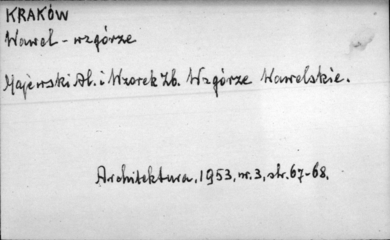 KRAKÓW
Wawel - wzgórze
Majewski Al. i Wzorek Zb. Wzgórze Wawelskie.
Architektura, 1953, nr. 3, str. 67-68.